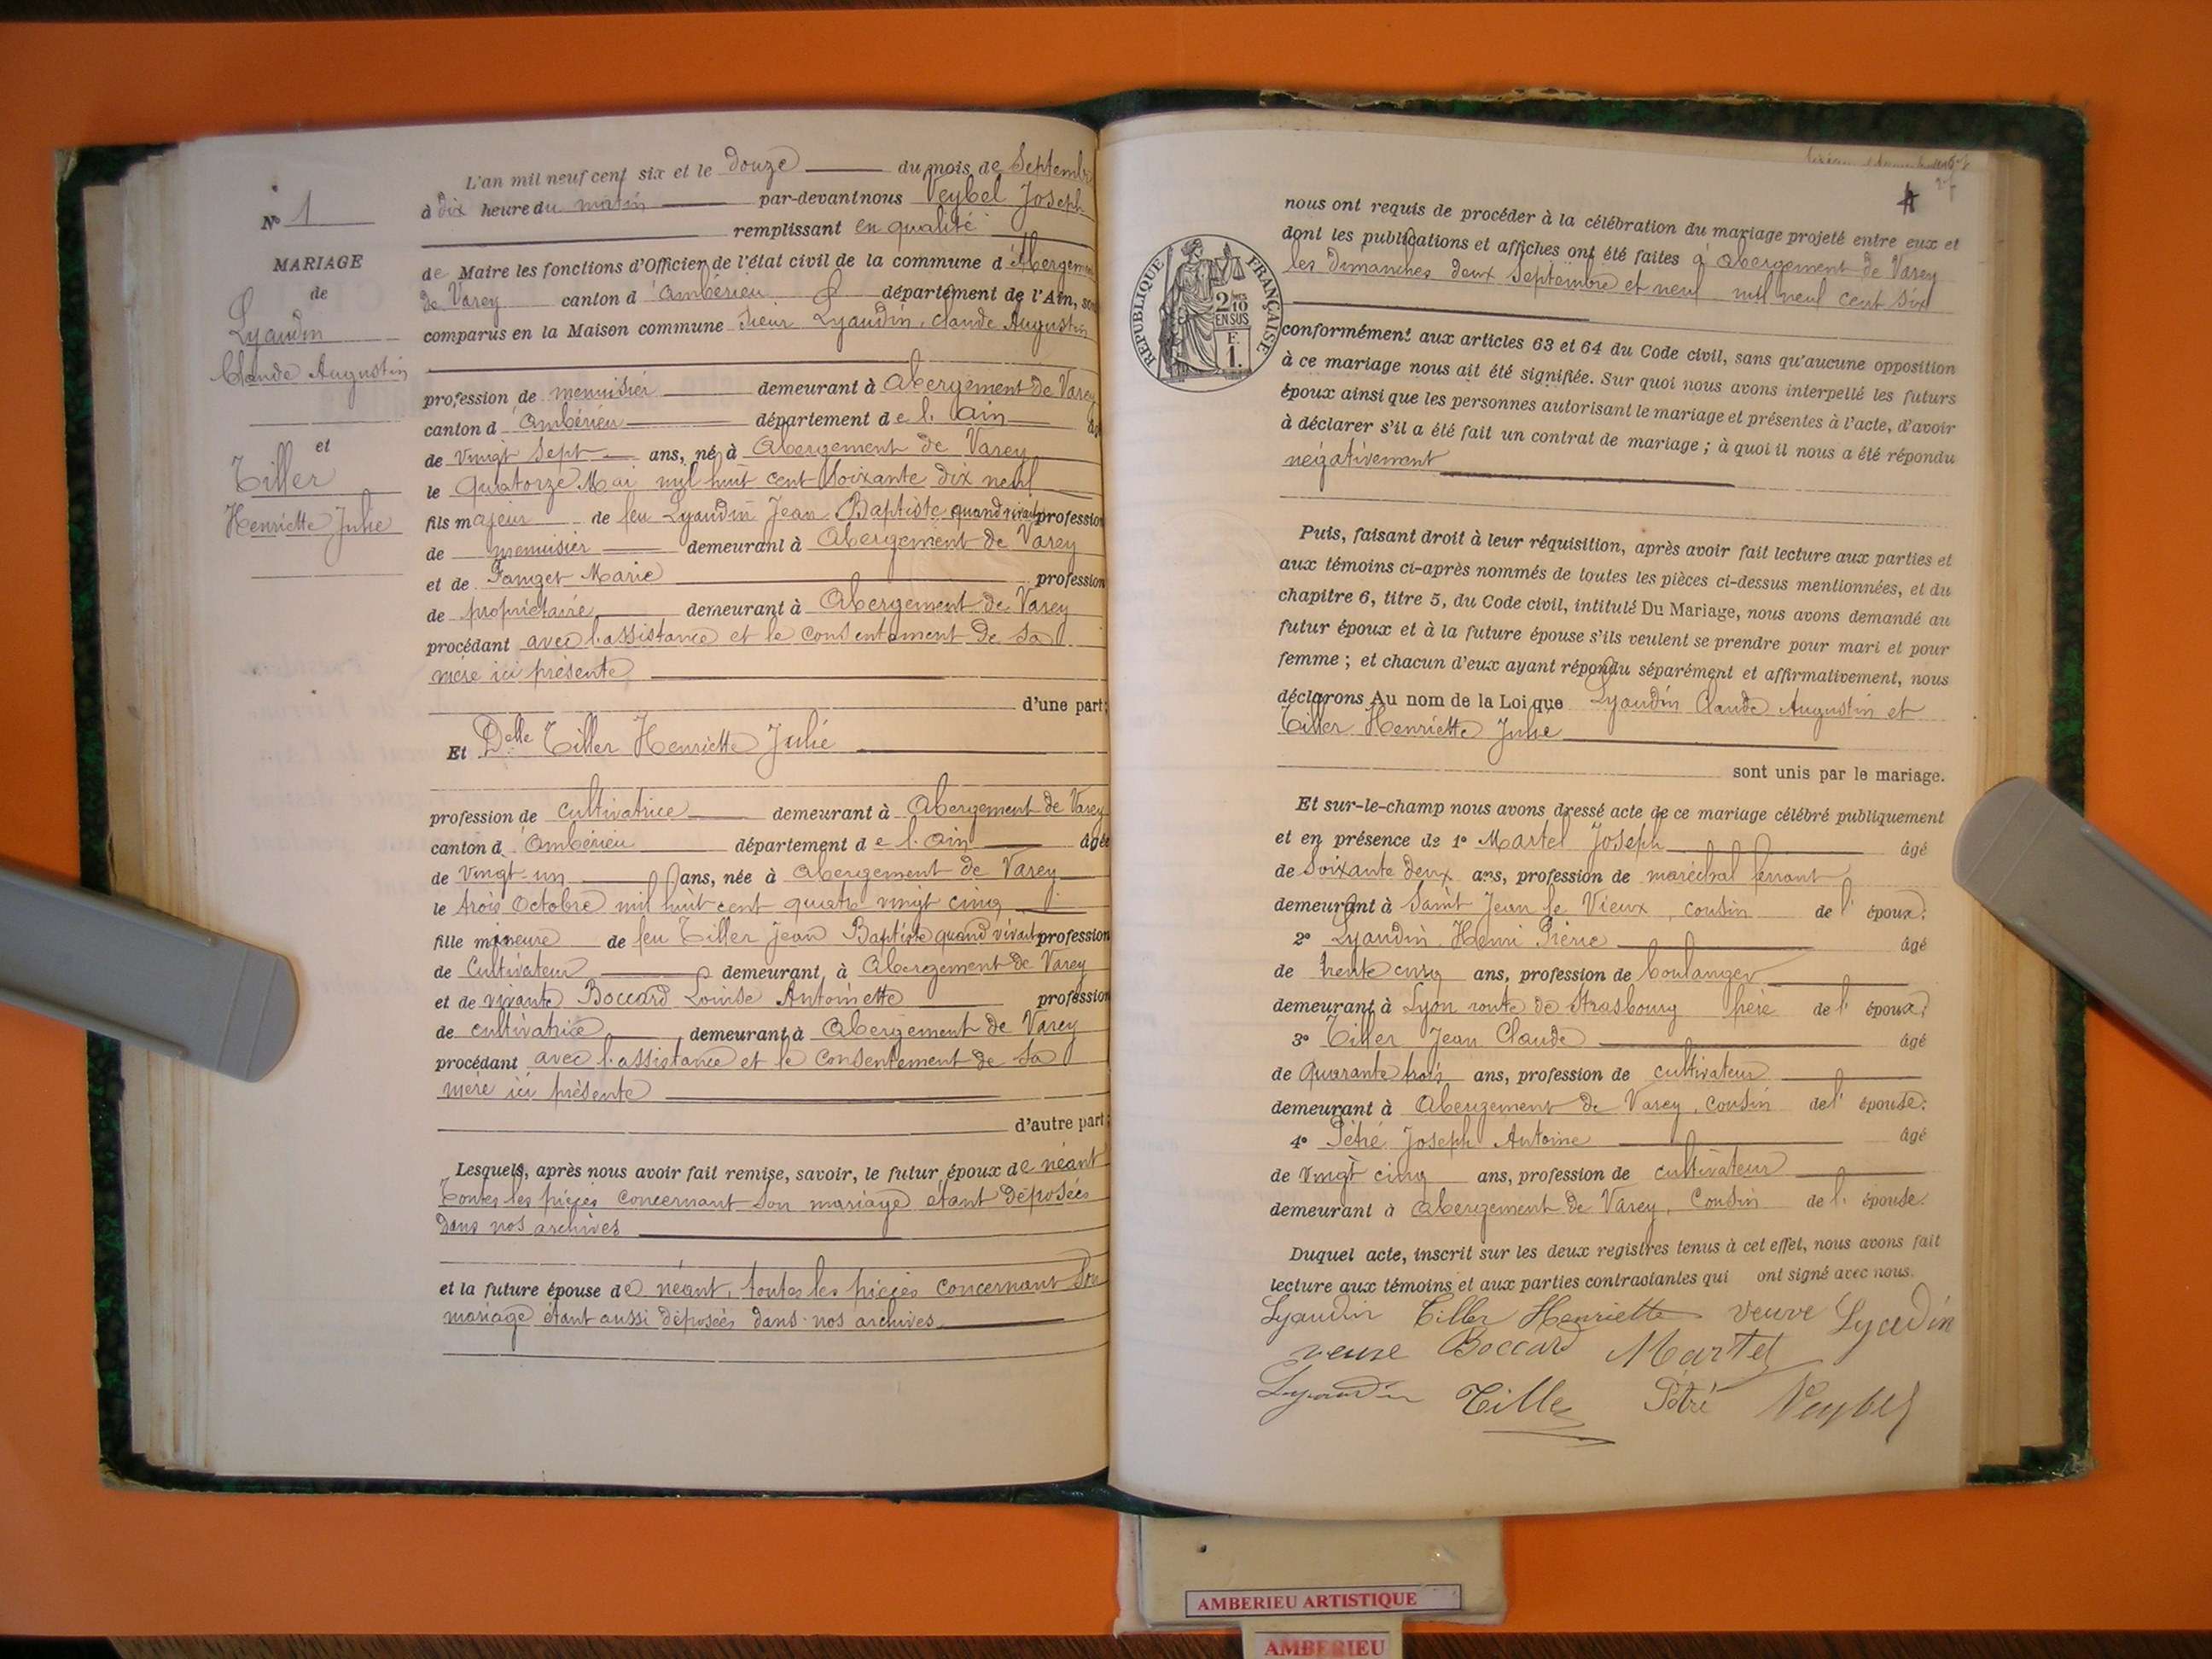 N° 1
MARIAGE
de
Lyaudin
Claude Augustin
et
Tiller
Henriette Julie
L'an mil neuf cent six et le douze du mois de Septembre
à dix heure du matin par-devant nous Veybel Joseph
remplissant en qualité
de Maire les fonctions d'Officier de l'état civil de la commune d'Abergement
de Varey canton d'Ambérieu département de l'Ain, sont
comparus en la Maison commune Sieur Lyaudin, Claude Augustin
profession de menuisier demeurant à Abergement de Varey
canton d'Ambérieu département de l'Ain âgé
de vingt sept ans, né à Abergement de Varey
le quatorze Mai mil huit cent soixante dix neuf
fils majeur de feu Lyaudin Jean Baptiste quand vivait profession
de menuisier demeurant à Abergement de Varey
et de Fanget Marie profession
de propriétaire demeurant à Abergement de Varey
procédant avec l'assistance et le consentement de sa
mère ici présente
d'une part;
Et Delle Tiller Henriette Julie
profession de cultivatrice demeurant à Abergement de Varey
canton d'Ambérieu département de l'Ain âgée
de vingt-un ans, née à Abergement de Varey
le trois Octobre mil huit cent quatre vingt cinq
fille mineure de feu Tiller Jean Baptiste quand vivait profession
de Cultivateur demeurant à Abergement de Varey
et de vivante Boccard Louise Antoinette profession
de cultivatrice demeurant à Abergement de Varey
procédant avec l'assistance et le consentement de sa
mère ici présente
d'autre part;
Lesquels, après nous avoir fait remise, savoir, le futur époux de néant
toutes les pièces concernant son mariage étant déposées
dans nos archives
et la future épouse de néant, toutes les pièces concernant son
mariage étant aussi déposées dans nos archives
RÉPUBLIQUE FRANÇAISE
2/10
EN SUS
F.
1.
nous ont requis de procéder à la célébration du mariage projeté entre eux et
dont les publications et affiches ont été faites à Abergement de Varey
les dimanches deux Septembre et neuf mil neuf cent six
conformément aux articles 63 et 64 du Code civil, sans qu'aucune opposition
à ce mariage nous ait été signifiée. Sur quoi nous avons interpellé les futurs
époux ainsi que les personnes autorisant le mariage et présentes à l'acte, d'avoir
à déclarer s'il a été fait un contrat de mariage ; à quoi il nous a été répondu
négativement
Puis, faisant droit à leur réquisition, après avoir fait lecture aux parties et
aux témoins ci-après nommés de toutes les pièces ci-dessus mentionnées, et du
chapitre 6, titre 5, du Code civil, intitulé Du Mariage, nous avons demandé au
futur époux et à la future épouse s'ils veulent se prendre pour mari et pour
femme ; et chacun d'eux ayant répondu séparément et affirmativement, nous
déclarons Au nom de la Loi que Lyaudin Claude Augustin et
Tiller Henriette Julie
sont unis par le mariage.
Et sur-le-champ nous avons dressé acte de ce mariage célébré publiquement
et en présence de 1° Martel Joseph âgé
de soixante deux ans, profession de maréchal ferrant
demeurant à Saint Jean le Vieux, cousin de l'époux.
2° Lyaudin Henri Pierre âgé
de trente cinq ans, profession de boulanger
demeurant à Lyon route de Strasbourg frère de l'époux.
3° Tiller Jean Claude âgé
de quarante trois ans, profession de cultivateur
demeurant à Abergement de Varey, cousin de l'épouse.
4° Pétré Joseph Antoine âgé
de vingt cinq ans, profession de cultivateur
demeurant à Abergement de Varey, cousin de l'épouse.
Duquel acte, inscrit sur les deux registres tenus à cet effet, nous avons fait
lecture aux témoins et aux parties contractantes qui ont signé avec nous.
Lyaudin Tiller Henriette veuve Lyaudin
veuve Boccard Martel
Lyaudin Tiller Pétré Veybel
AMBERIEU ARTISTIQUE
AMBERIEU